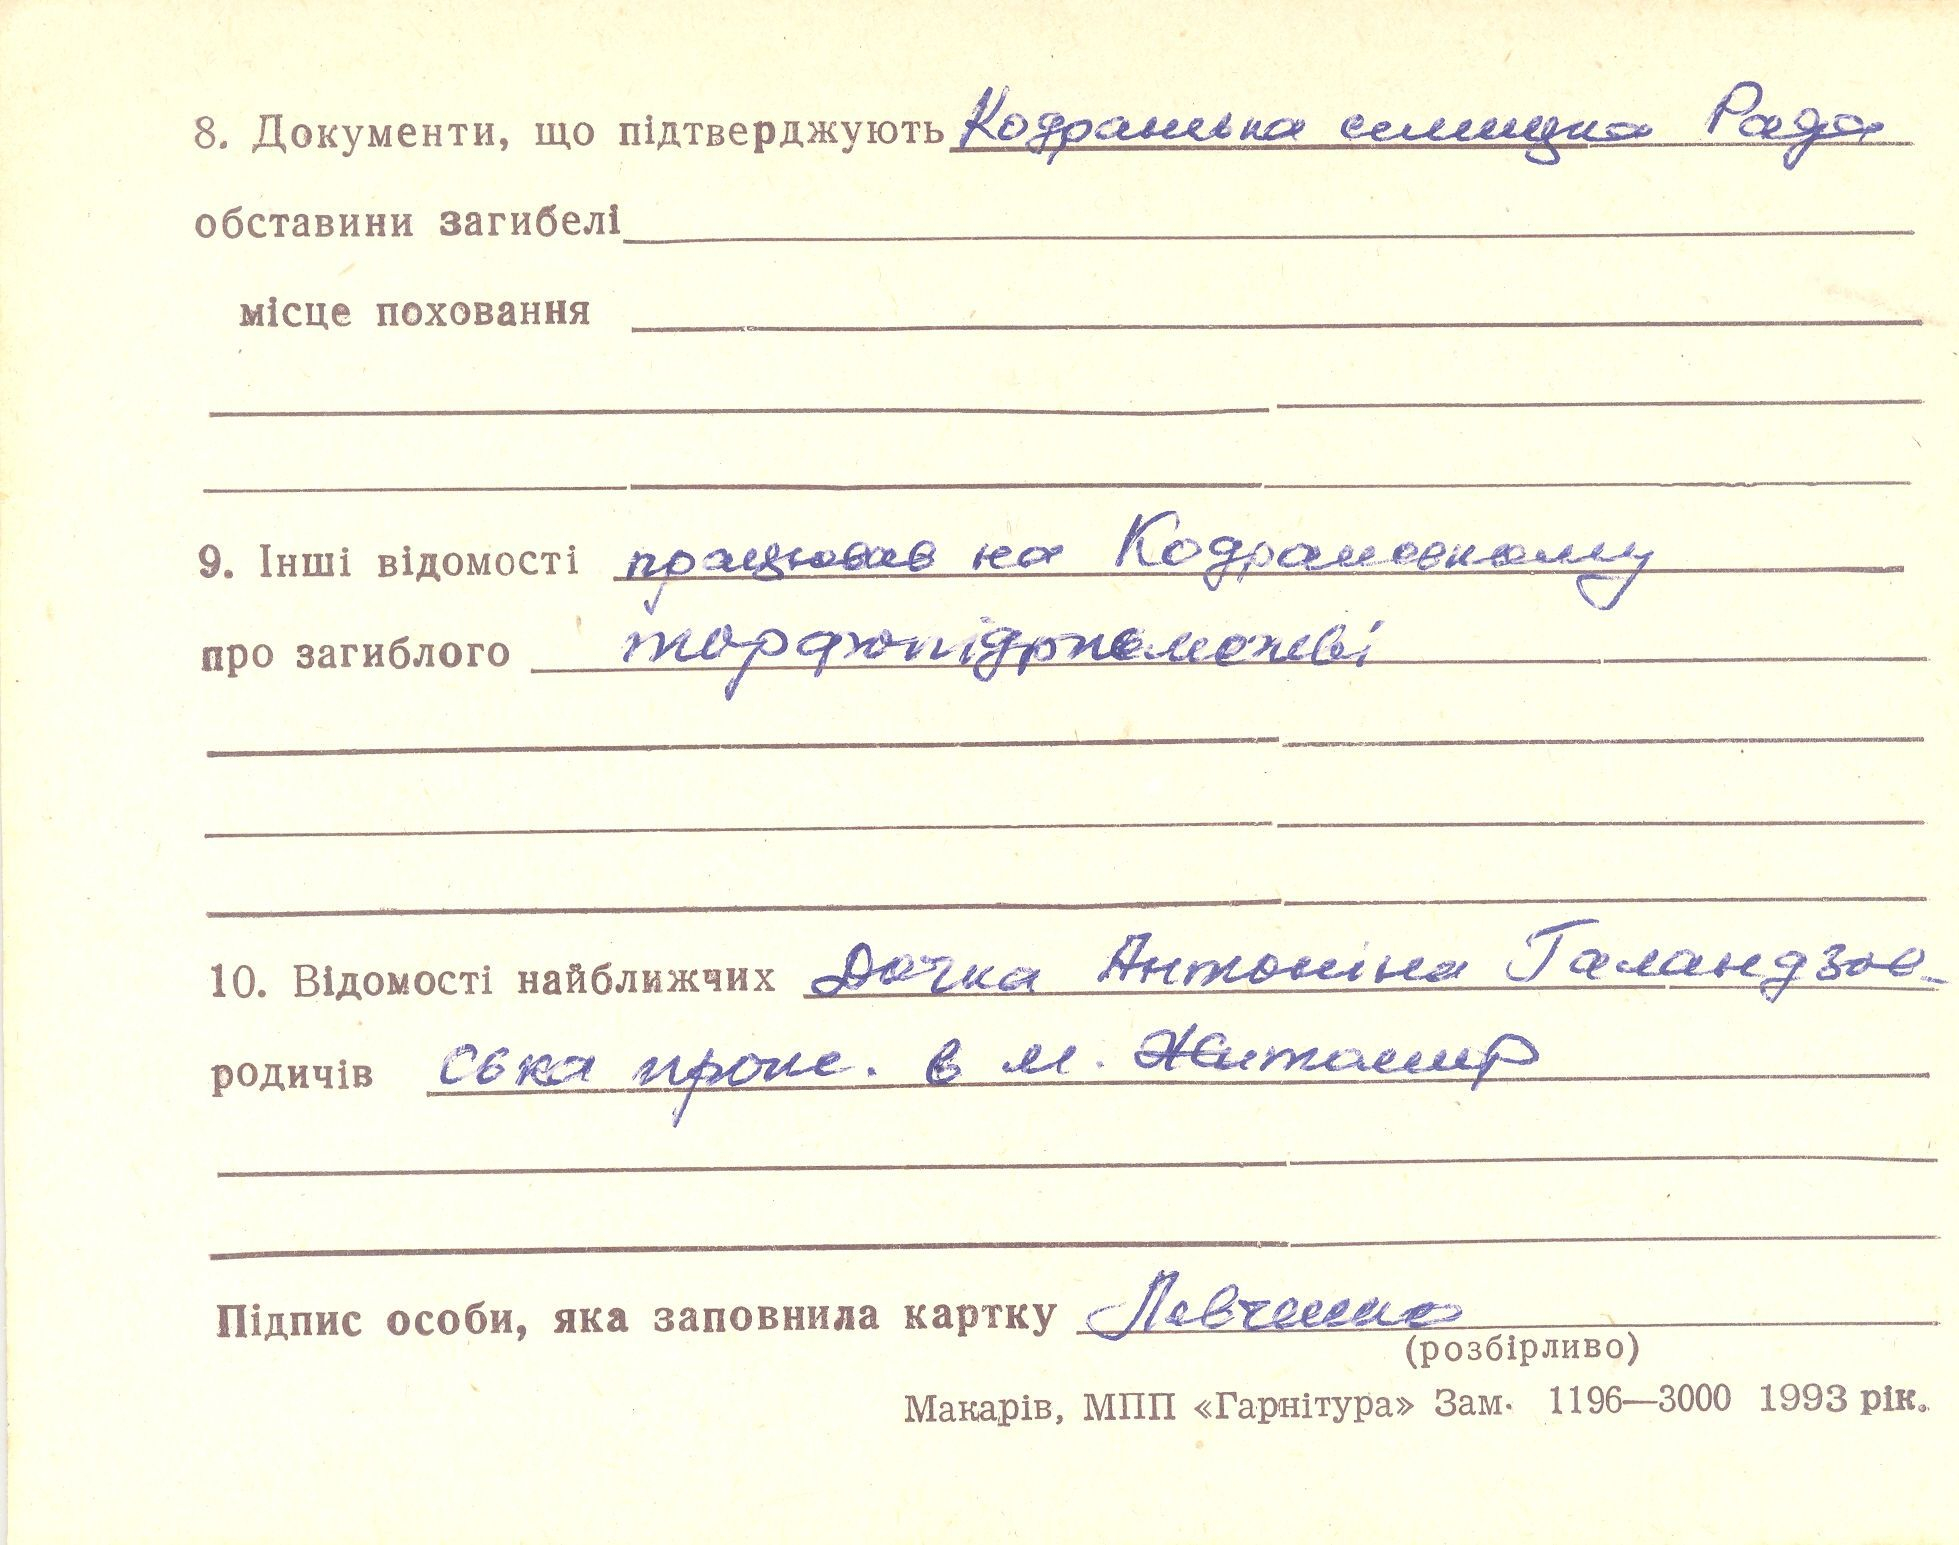 8. Документи, що підтверджують Кодранська селищна Рада
обставини загибелі
місце поховання
9. Інші відомості працював на Кодрянському
про загиблого
10. Відомості найближчих Дочка Антоніна Галандзов-
родичів ська прож. в м. Житомир
Підпис особи, яка заповнила картку Левченко
(розбірливо)
Макарів, МПП «Гарнітура» Зам. 1196—3000 1993 рік.